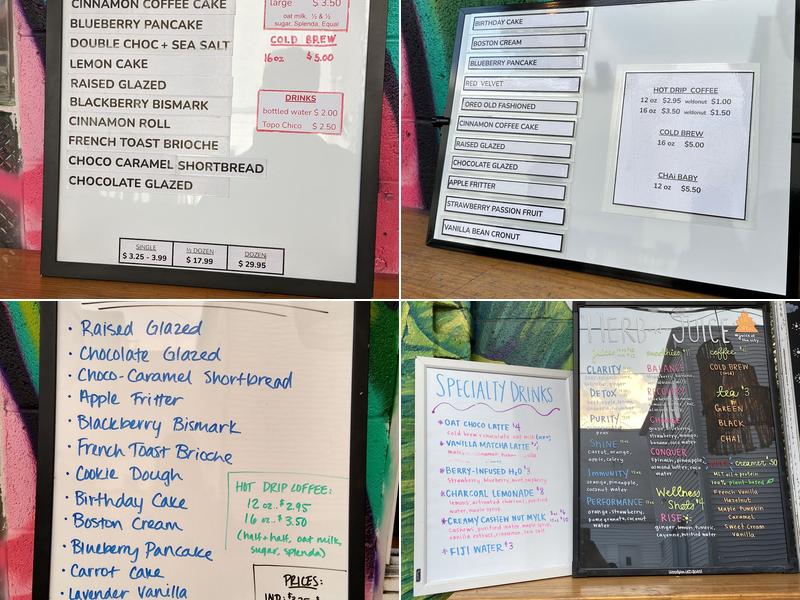 CINNAMON COFFEE CAKE
BLUEBERRY PANCAKE
DOUBLE CHOC + SEA SALT
LEMON CAKE
RAISED GLAZED
BLACKBERRY BISMARK
CINNAMON ROLL
FRENCH TOAST BRIOCHE
CHOCO CARAMEL SHORTBREAD
CHOCOLATE GLAZED
large $ 3.50
oat milk, ½ & ½
sugar, Splenda, Equal
COLD BREW
16oz $5.00
DRINKS
bottled water $ 2.00
Topo Chico $ 2.50
SINGLE
$ 3.25 - 3.99
½ DOZEN
$ 17.99
DOZEN
$ 29.95
BIRTHDAY CAKE
BOSTON CREAM
BLUEBERRY PANCAKE
RED VELVET
OREO OLD FASHIONED
CINNAMON COFFEE CAKE
RAISED GLAZED
CHOCOLATE GLAZED
APPLE FRITTER
STRAWBERRY PASSION FRUIT
VANILLA BEAN CRONUT
HOT DRIP COFFEE
12 oz $2.95 w/donut $1.00
16 oz $3.50 w/donut $1.50
COLD BREW
16 oz $5.00
CHAi BABY
12 oz $5.50
• Raised Glazed
• Chocolate Glazed
• Choco-Caramel Shortbread
• Apple Fritter
• Blackberry Bismark
• French Toast Brioche
• Cookie Dough
• Birthday Cake
• Boston Cream
• Blueberry Pancake
• Carrot Cake
• Lavender Vanilla
HOT DRIP COFFEE:
12 oz..$2.95
16 oz..$3.50
(half+half, oat milk,
sugar, splenda)
PRICES:
SPECIALTY DRINKS
* OAT CHOCO LATTE $4
cold brew, chocolate oat milk
* VANILLA MATCHA LATTE
* BERRY-INFUSED H2O $3
Strawberry, blueberry, mint
* CHARCOAL LEMONADE $8
lemons, activated charcoal, purified
water, maple syrup
* CREAMY CASHEW NUT MYLK
cashews, purified water, maple syrup,
vanilla extract, cinnamon, sea salt
* FIJI WATER $3
HERB N JUICE
juices
smoothies
coffee
CLARITY
DETOX
PURITY
pear
SHINE
carrot, orange,
apple, celery
IMMUNITY
orange, pineapple,
coconut water
PERFORMANCE
orange, strawberry,
pomegranate, coconut
water
BALANCE
RECOVERY
CHANGE
CONQUER
spinach, pineapple,
almond butter, coco
water
Wellness
Shots $4
RISE
ginger, lemon, turmeric,
cayenne, purified water
COLD BREW
tea $3
GREEN
BLACK
CHAI
creamer $.50
MCT oil + protein
100% plant-based
French Vanilla
Hazelnut
Maple Pumpkin
Caramel
Sweet Cream
Vanilla